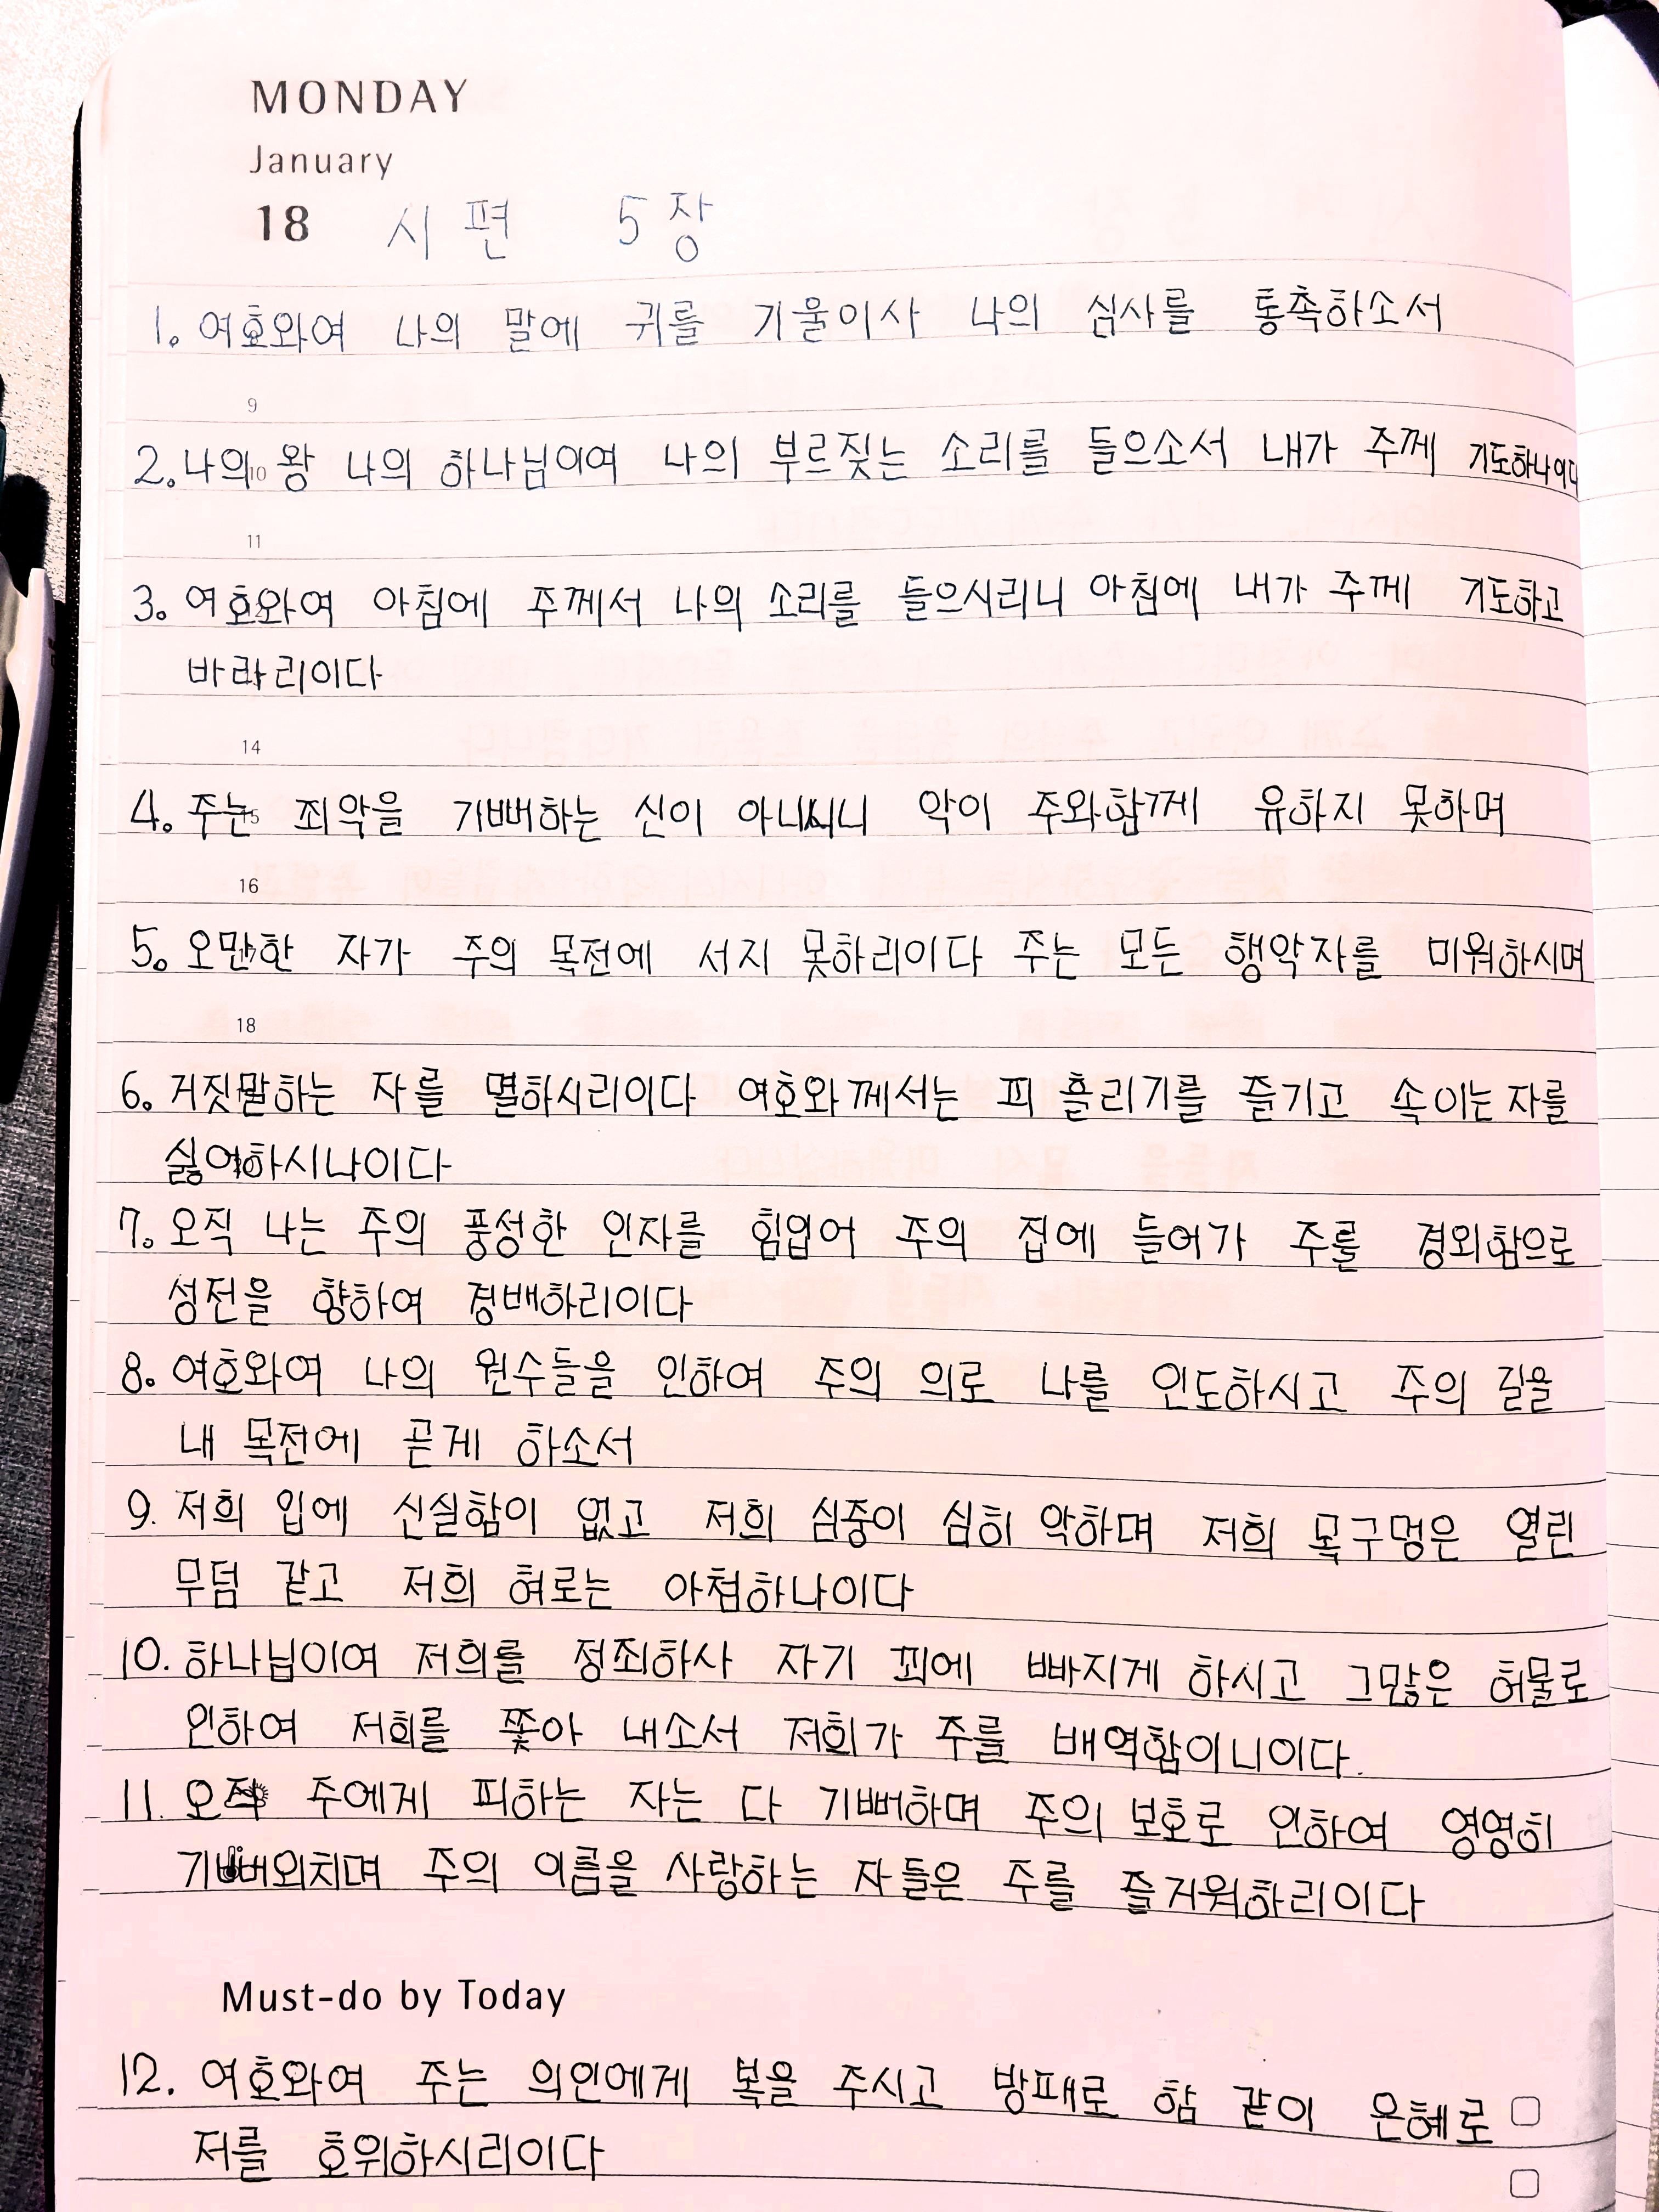 MONDAY
January
18 시편 5장
1. 여호와여 나의 말에 귀를 기울이사 나의 심사를 통촉하소서
9
2. 나의 왕 나의 하나님이여 나의 부르짖는 소리를 들으소서 내가 주께 기도하나이다
10
11
3. 여호와여 아침에 주께서 나의 소리를 들으시리니 아침에 내가 주께 기도하고
바라리이다
14
4. 주는 죄악을 기뻐하는 신이 아니시니 악이 주와함께 유하지 못하며
15
16
5. 오만한 자가 주의 목전에 서지 못하리이다 주는 모든 행악자를 미워하시며
18
6. 거짓말하는 자를 멸하시리이다 여호와께서는 피 흘리기를 즐기고 속이는 자를
싫어하시나이다
7. 오직 나는 주의 풍성한 인자를 힘입어 주의 집에 들어가 주를 경외함으로
성전을 향하여 경배하리이다
8. 여호와여 나의 원수들을 인하여 주의 의로 나를 인도하시고 주의 길을
내 목전에 곧게 하소서
9. 저희 입에 신실함이 없고 저희 심중이 심히 악하며 저희 목구멍은 열린
무덤 같고 저희 혀로는 아첨하나이다
10. 하나님이여 저희를 정죄하사 자기 꾀에 빠지게 하시고 그많은 허물로
인하여 저희를 쫓아 내소서 저희가 주를 배역함이니이다.
11. 오직 주에게 피하는 자는 다 기뻐하며 주의 보호로 인하여 영영히
기뻐외치며 주의 이름을 사랑하는 자들은 주를 즐거워하리이다
Must-do by Today
12. 여호와여 주는 의인에게 복을 주시고 방패로 함 같이 은혜로
저를 호위하시리이다